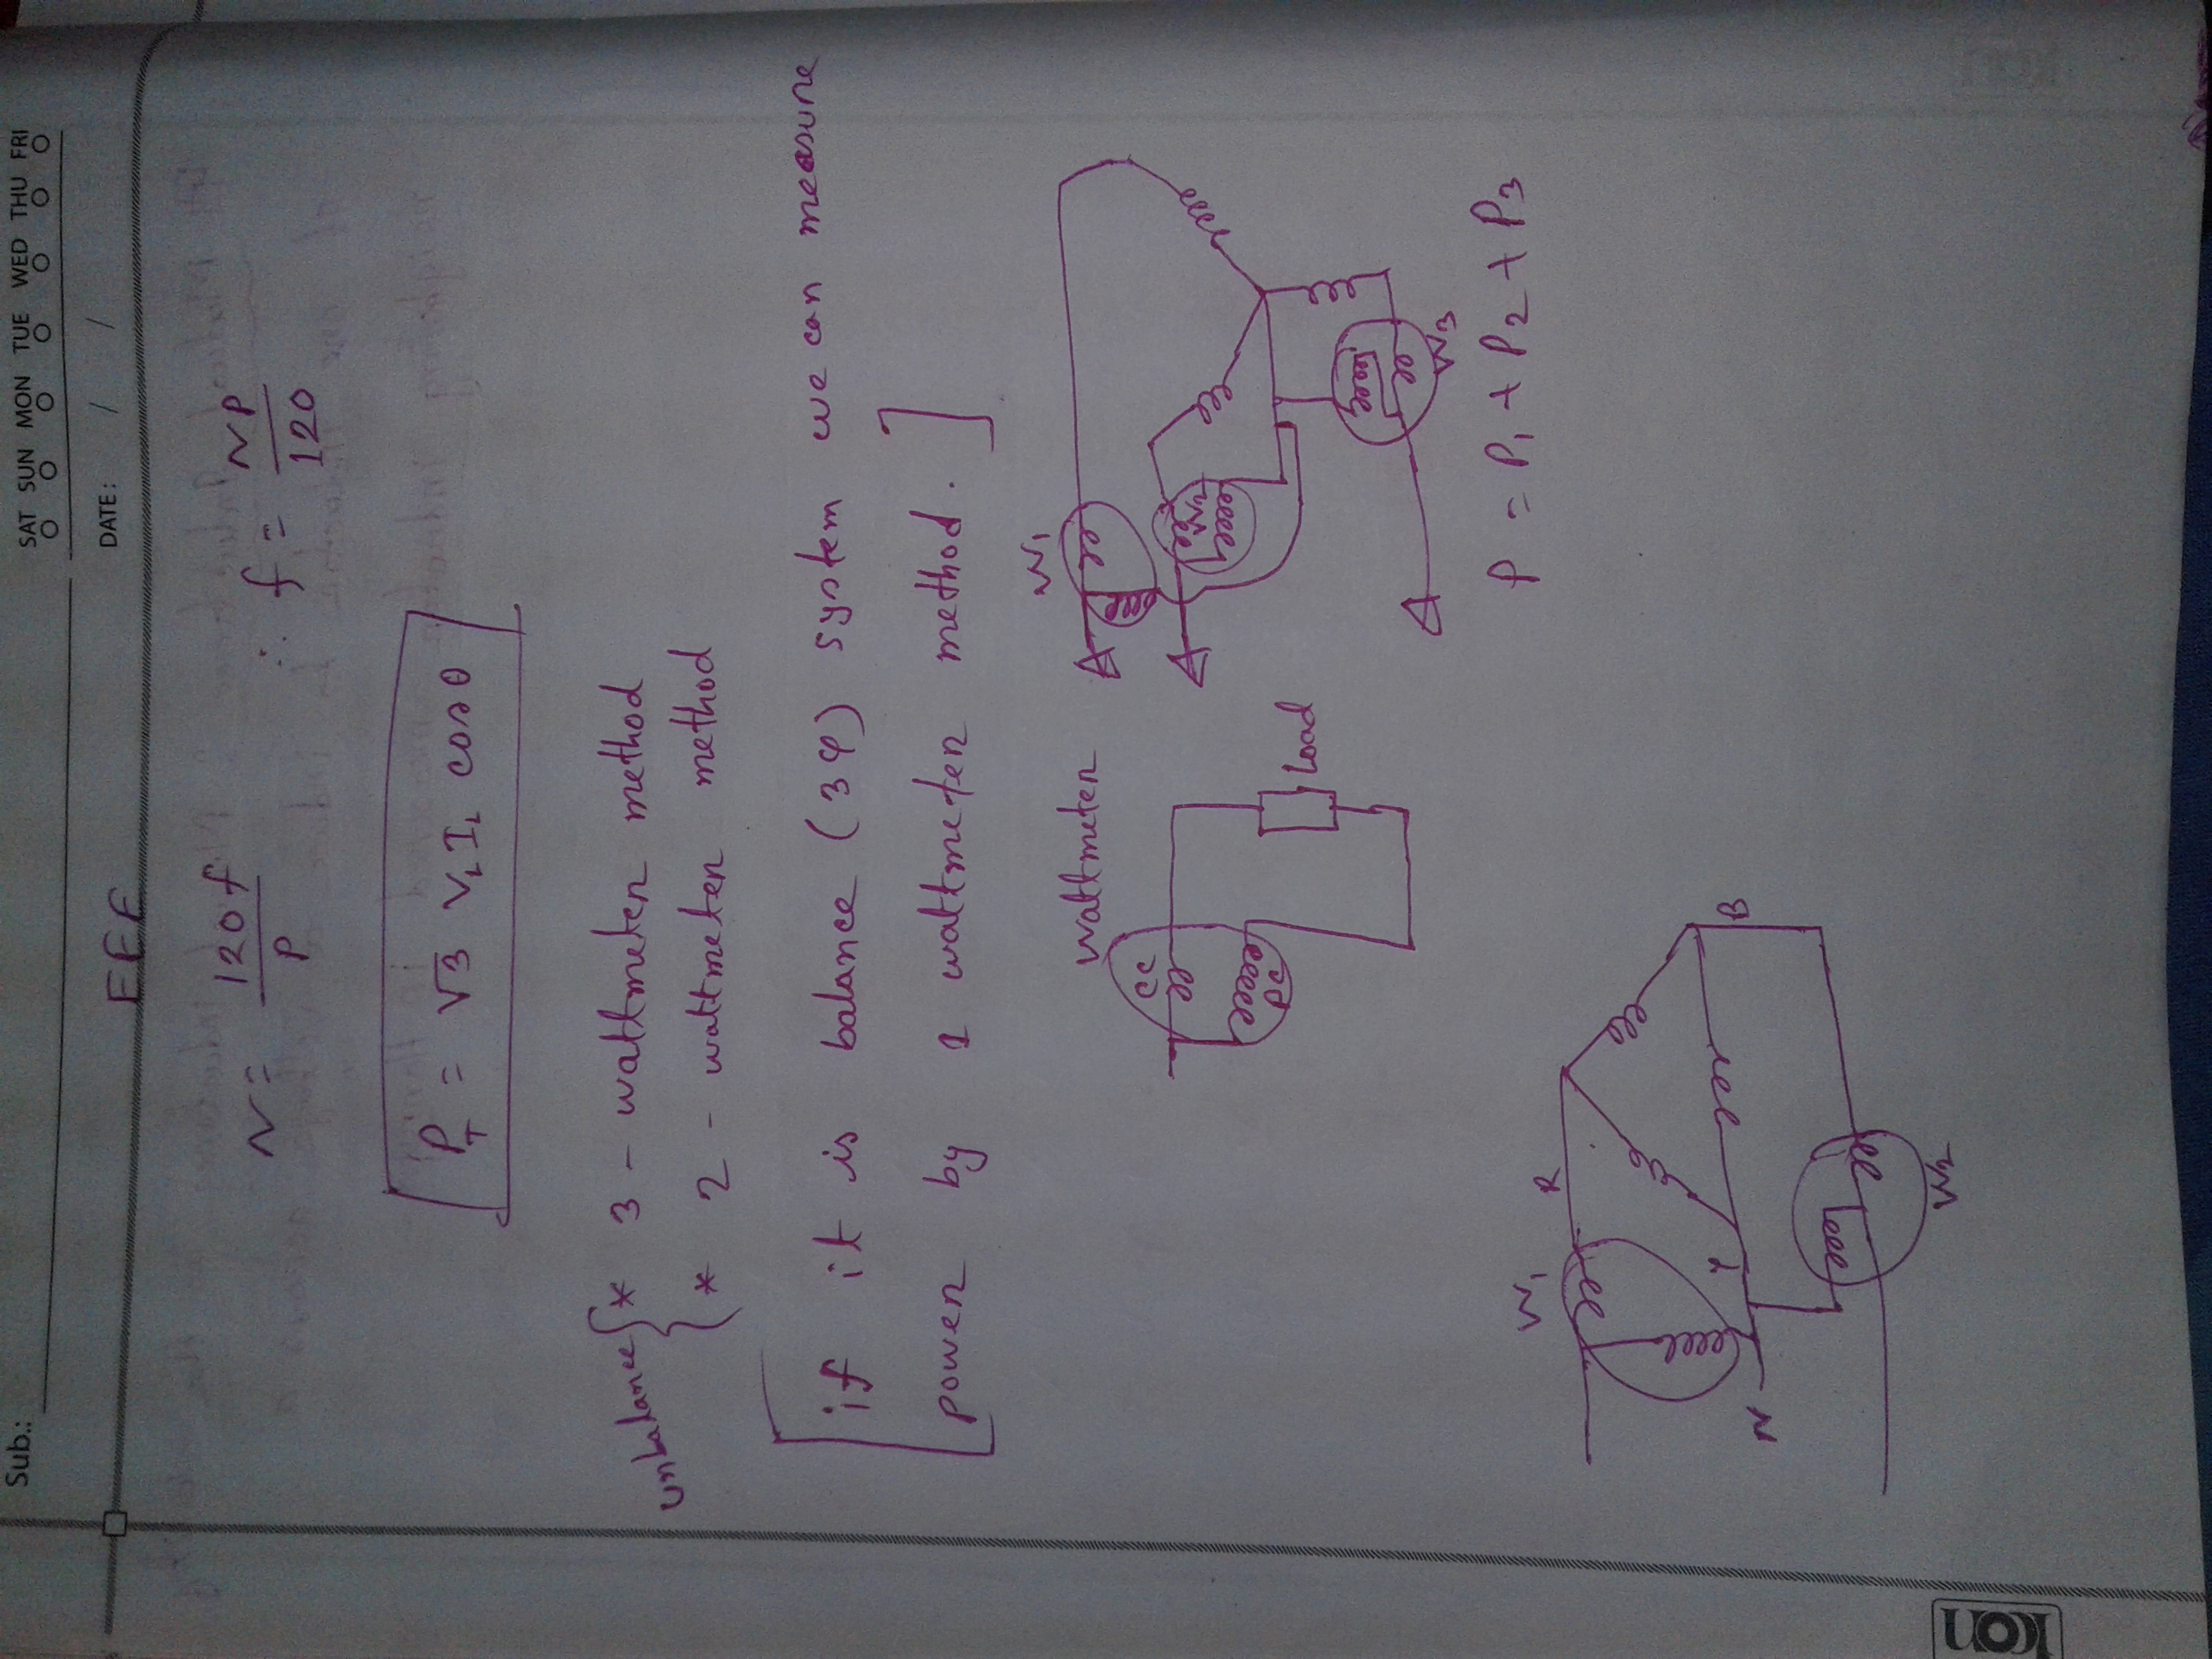 Sub.:
SAT SUN MON TUE WED THU FRI
DATE: / /
EEE
N = 120f / P ∴ f = NP / 120
P_T = √3 V_L I_L cosθ
unbalance { * 3 - wattmeter method
* 2 - wattmeter method
[ if it is balance (3φ) system we can measure
power by 1 wattmeter method. ]
Wattmeter
CC
PC
Load
W1
W2
W3
P = P1 + P2 + P3
W1
R
Y
N
B
W2
ION